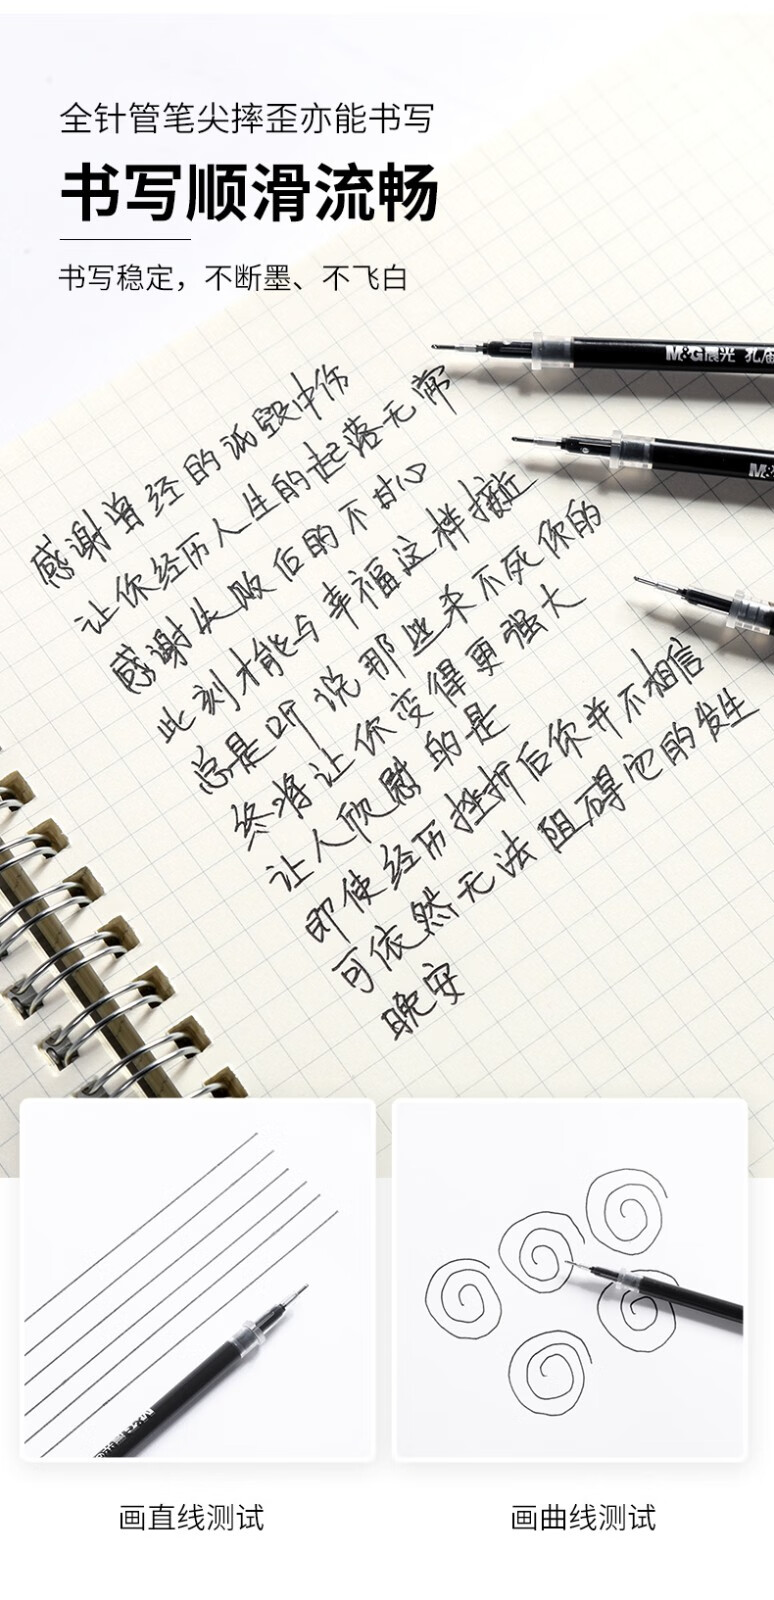 全针管笔尖摔歪亦能书写
书写顺滑流畅
书写稳定，不断墨、不飞白
M&G晨光 孔庙
M&
感谢曾经的诋毁中伤
让你经历人生的起落无常
感谢失败后的不甘心
此刻才能与幸福这样接近
总是听说那些杀不死你的
终将让你变得更强大
让人欣慰的是
即使经历挫折后你并不相信
可依然无法阻碍它的发生
晚安
画直线测试
画曲线测试